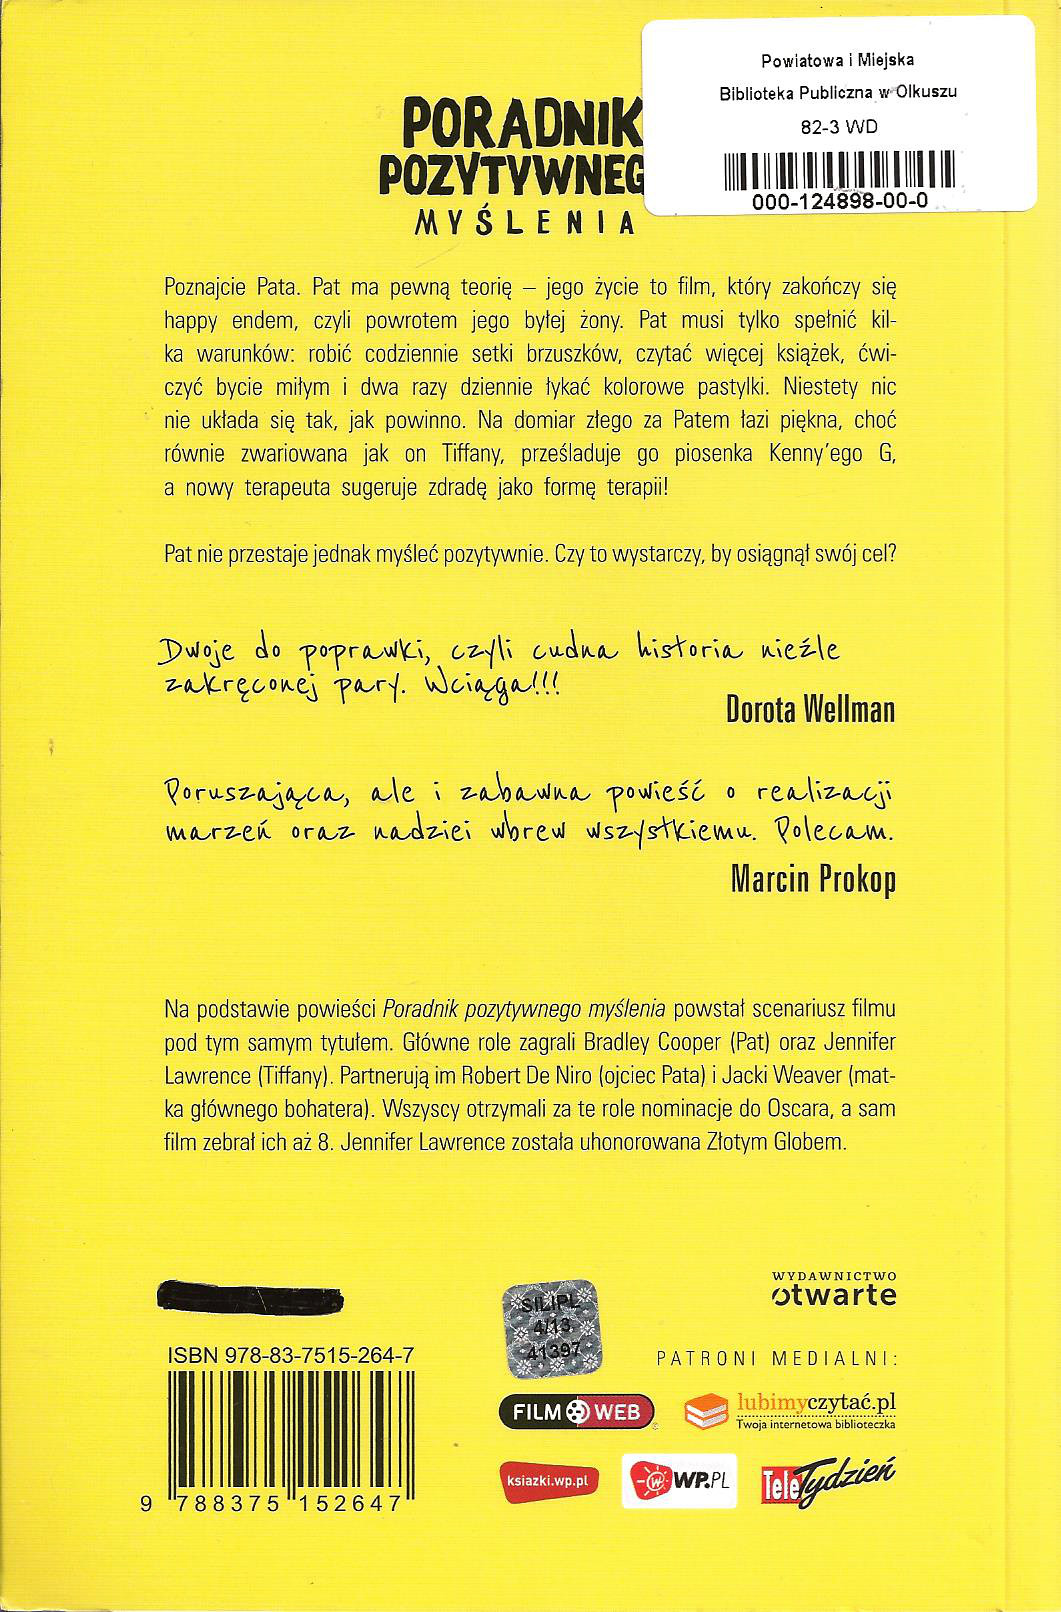 Powiatowa i Miejska
Biblioteka Publiczna w Olkuszu
82-3 WD
000-124898-00-0
PORADNIK
POZYTYWNEG
MYŚLENIA
Poznajcie Pata. Pat ma pewną teorię – jego życie to film, który zakończy się
happy endem, czyli powrotem jego byłej żony. Pat musi tylko spełnić kil-
ka warunków: robić codziennie setki brzuszków, czytać więcej książek, ćwi-
czyć bycie miłym i dwa razy dziennie łykać kolorowe pastylki. Niestety nic
nie układa się tak, jak powinno. Na domiar złego za Patem łazi piękna, choć
równie zwariowana jak on Tiffany, prześladuje go piosenka Kenny'ego G,
a nowy terapeuta sugeruje zdradę jako formę terapii!
Pat nie przestaje jednak myśleć pozytywnie. Czy to wystarczy, by osiągnął swój cel?
Dwoje do poprawki, czyli cudna historia nieźle
zakręconej pary. Wciąga!!!
Dorota Wellman
Poruszająca, ale i zabawna powieść o realizacji
marzeń oraz nadziei wbrew wszystkiemu. Polecam.
Marcin Prokop
Na podstawie powieści Poradnik pozytywnego myślenia powstał scenariusz filmu
pod tym samym tytułem. Główne role zagrali Bradley Cooper (Pat) oraz Jennifer
Lawrence (Tiffany). Partnerują im Robert De Niro (ojciec Pata) i Jacki Weaver (mat-
ka głównego bohatera). Wszyscy otrzymali za te role nominacje do Oscara, a sam
film zebrał ich aż 8. Jennifer Lawrence została uhonorowana Złotym Globem.
WYDAWNICTWO
otwarte
SILIPL
4/13
41397
ISBN 978-83-7515-264-7
9 788375 152647
PATRONI MEDIALNI:
FILM WEB
lubimyczytać.pl
Twoja internetowa biblioteczka
ksiazki.wp.pl
WP.PL
Tele Tydzień